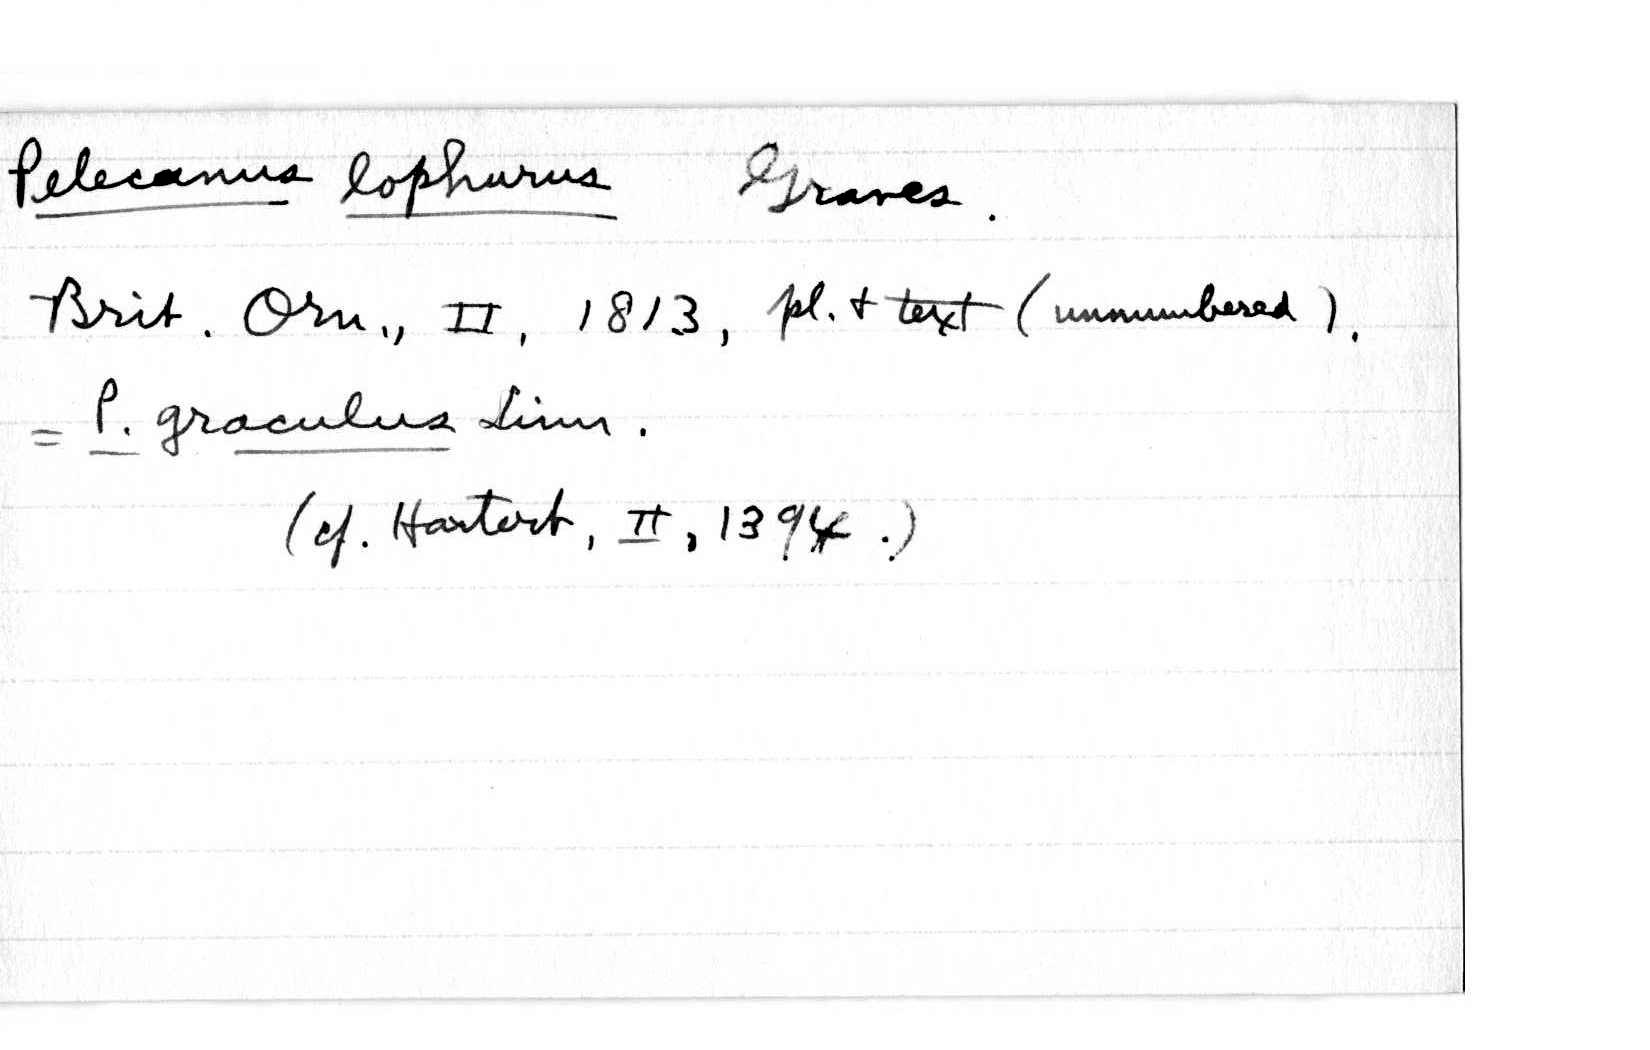 Pelecanus lophurus Graves.
Brit. Orn., II, 1813, pl. & text (unnumbered).
= P. graculus Linn.
(cf. Hartert, II, 1394.)